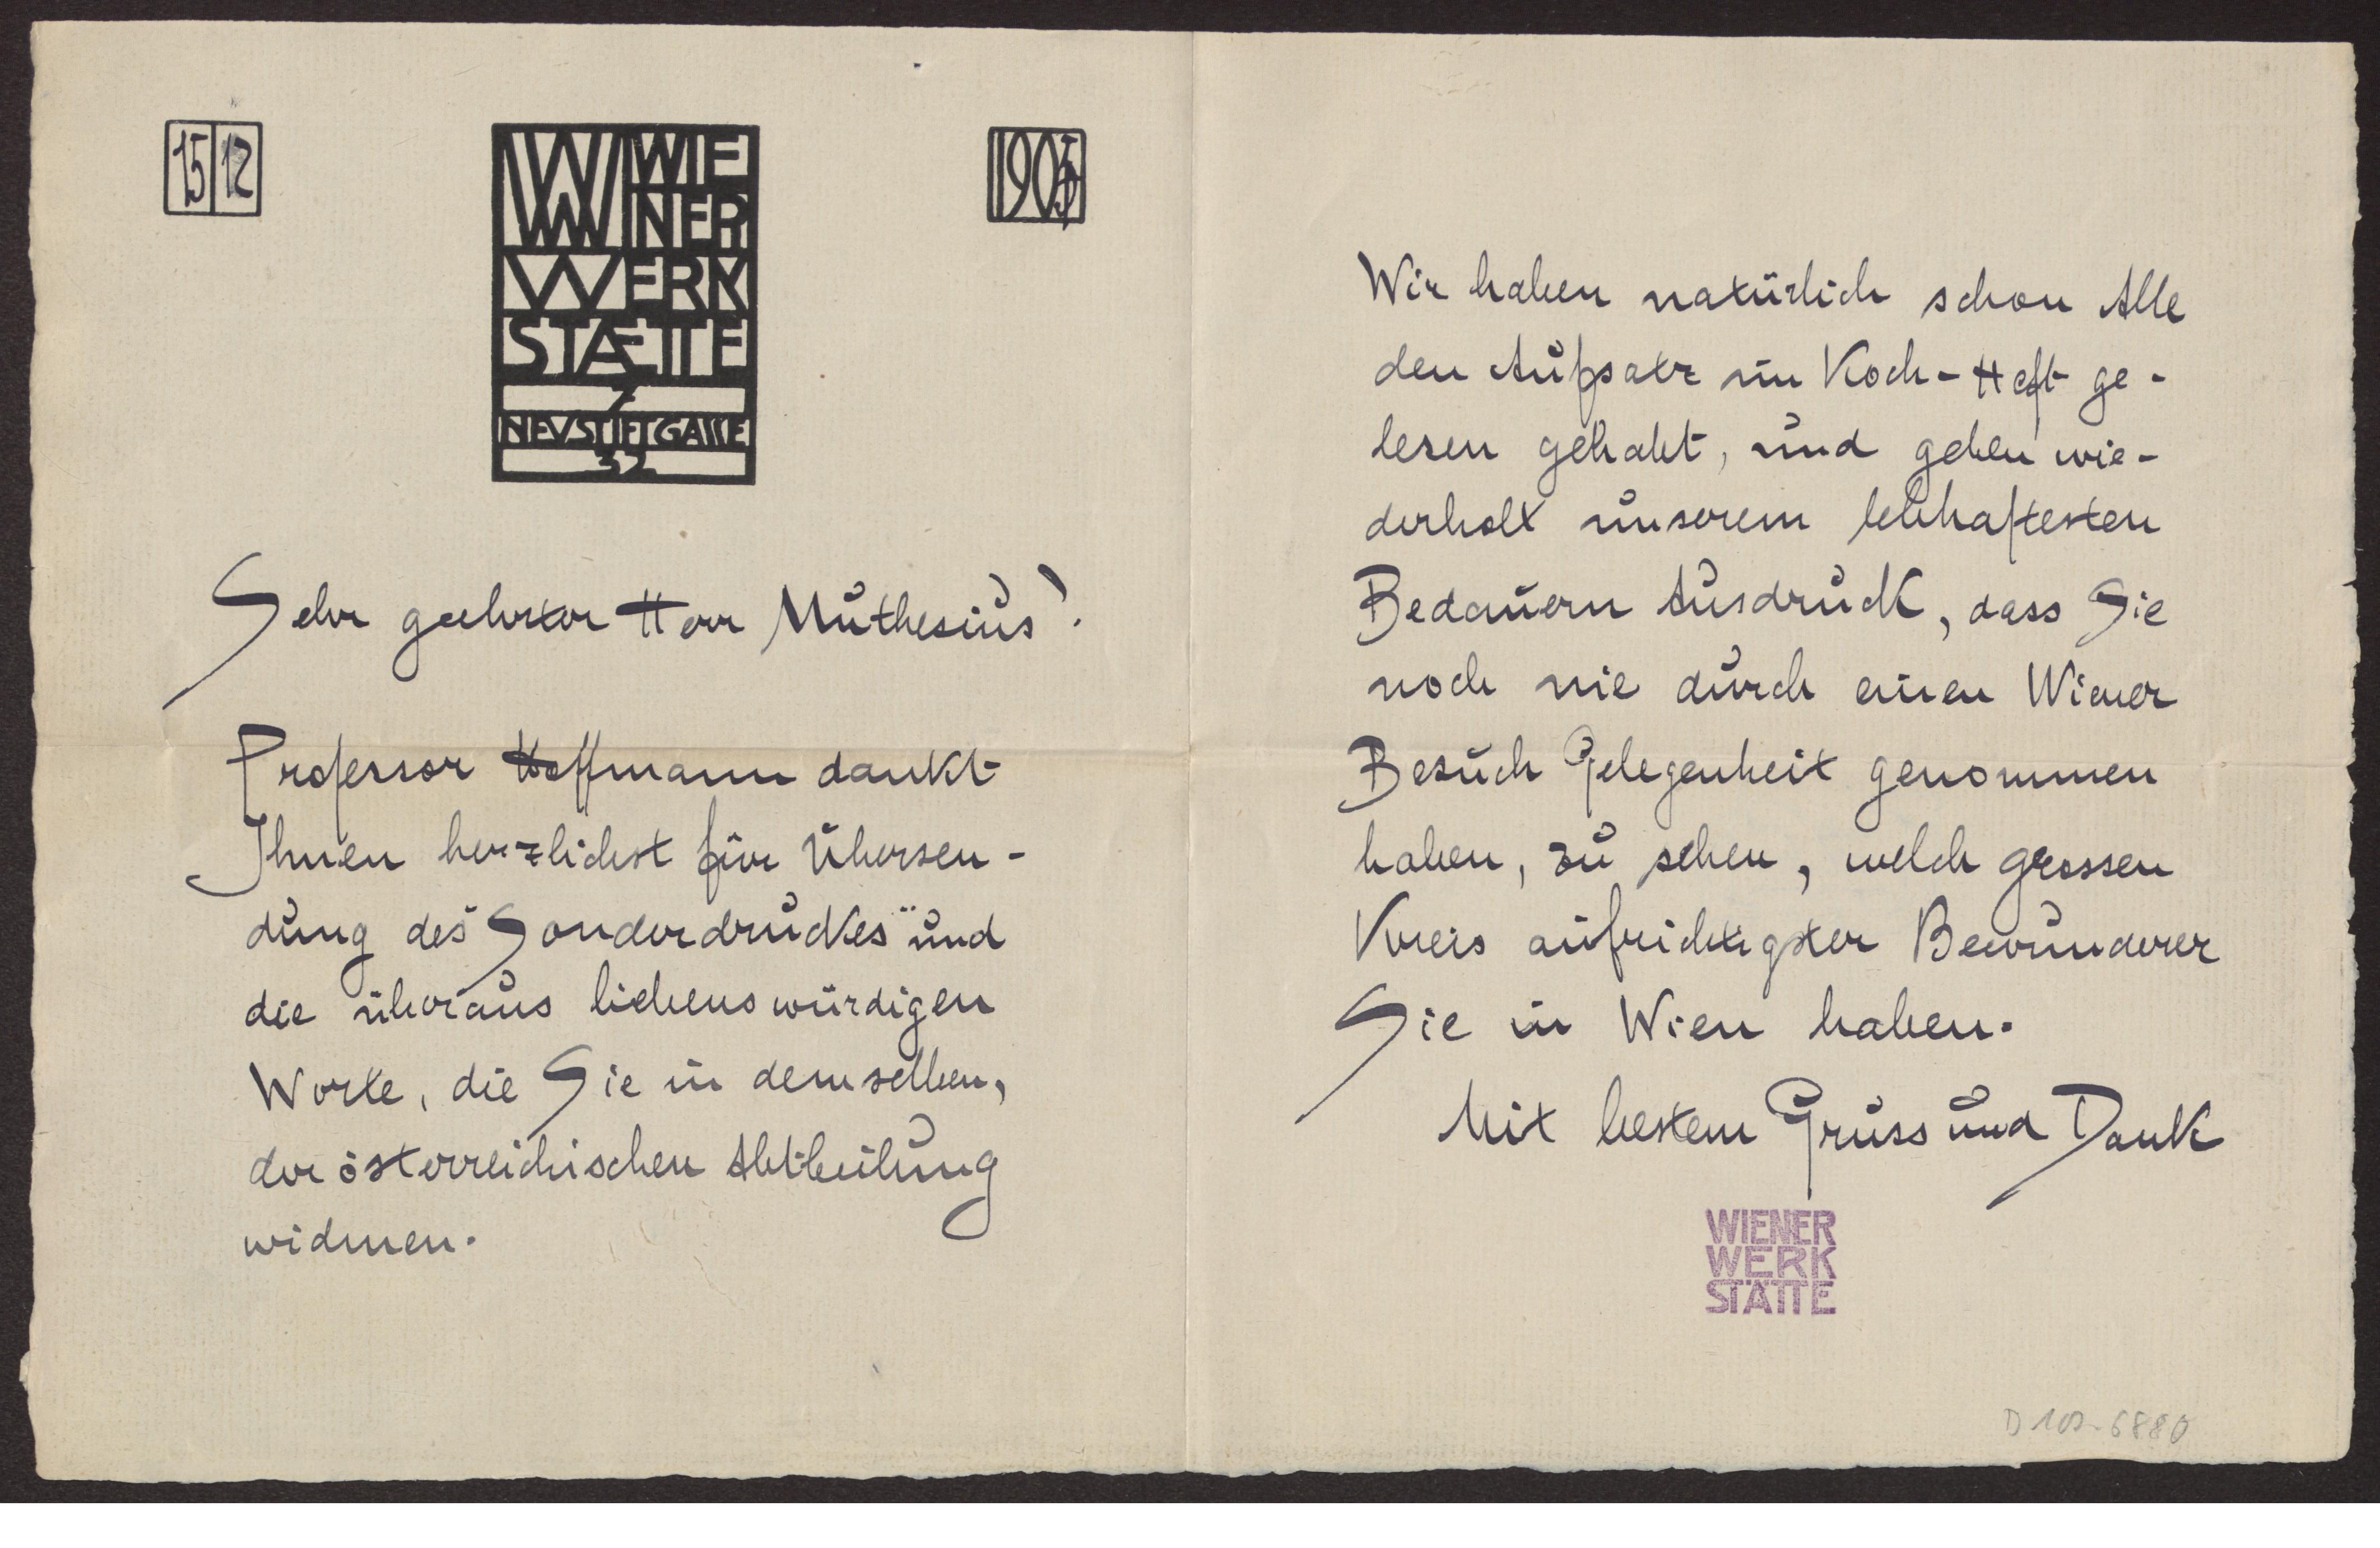 15 12
WIE
NER
WERK
STÆTTE
7
NEUSTIFTGASSE
32
Sehr geehrter Herr Muthesius!
Professor Hoffmann dankt
Ihnen herzlichst für Übersen-
dung des „Sonderdruckes" und
die überaus liebenswürdigen
Worte, die Sie in demselben,
der österreichischen Abtheilung
widmen.
Wir haben natürlich schon Alle
den Aufsatz im Koch-Heft ge-
lesen gehabt, und geben wie-
derholt unserem lebhaftesten
Bedauern Ausdruck, dass Sie
noch nie durch einen Wiener
Besuch Gelegenheit genommen
haben, zu sehen, welch grossen
Kreis aufrichtigster Bewunderer
Sie in Wien haben.
Mit bestem Gruss und Dank
WIENER
WERK
STÄTTE
D 102-6880